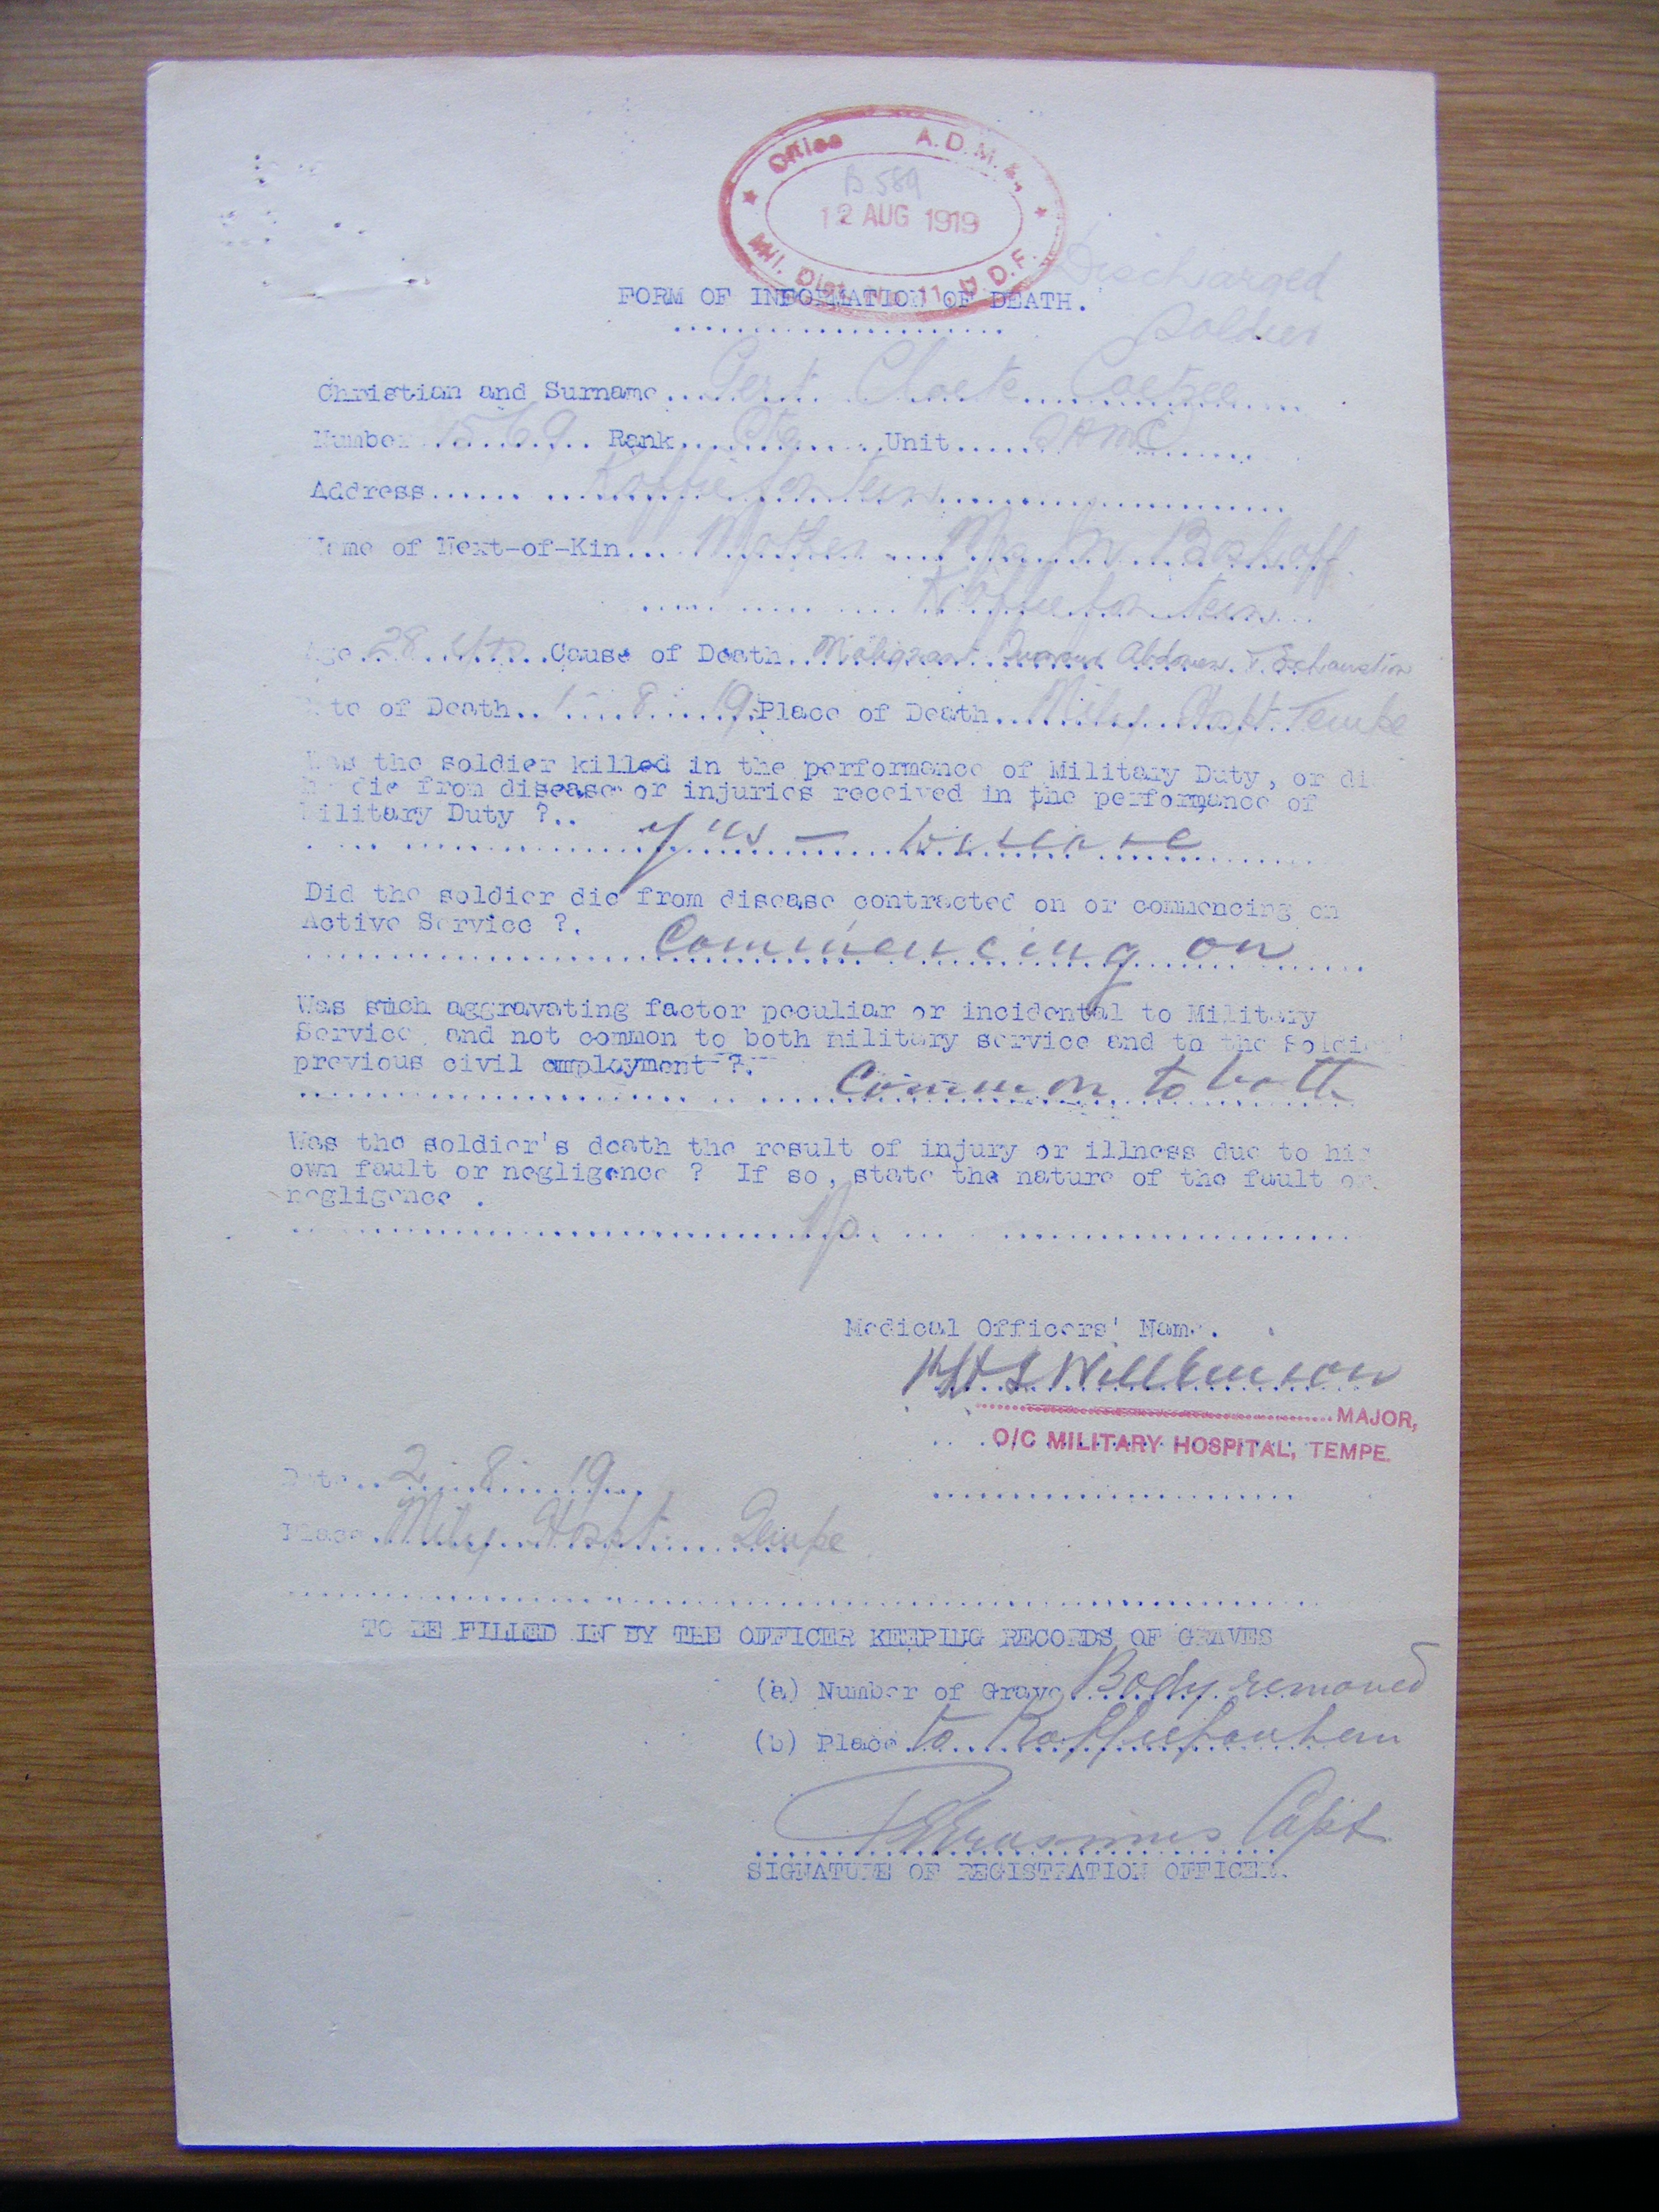 Office A.D.M.S.,
B.589
12 AUG 1919
Mil. Dist. No. 11. U.D.F.
Discharged
Soldier
FORM OF INFORMATION OF DEATH.
Christian and Surname... Gert Cloete Coetzee
Number Rank Pte Unit SAMC
Address Koffiefontein
Name of Next-of-Kin... Mother - Mrs M Boshoff
Koffiefontein
Age 28 yrs Cause of Death Malignant Tumour Abdomen. Exhaustion
Date of Death.. 1 - 8 - 19 Place of Death Mily Hospt. Tempe
Was the soldier killed in the performance of Military Duty, or di
he die from disease or injuries received in the performance of
Military Duty ?..
yes - disease
Did the soldier die from disease contracted on or commencing on
Active Service ?.
Commencing on
Was such aggravating factor peculiar or incidental to Military
Service and not common to both military service and to the Soldier'
previous civil employment ?.
Common to both
Was the soldier's death the result of injury or illness due to his
own fault or negligence ? If so, state the nature of the fault or
negligence .
No.
Medical Officers' Name.
MAJOR,
O/C MILITARY HOSPITAL, TEMPE.
Date.. 2 - 8 - 19
Place. Mily Hospt. Tempe
TO BE FILLED IN BY THE OFFICER KEEPING RECORDS OF GRAVES
(a) Number of Grave Body removed
(b) Place to Koffiefontein
Erasmus Capt
SIGNATURE OF REGISTRATION OFFICER.